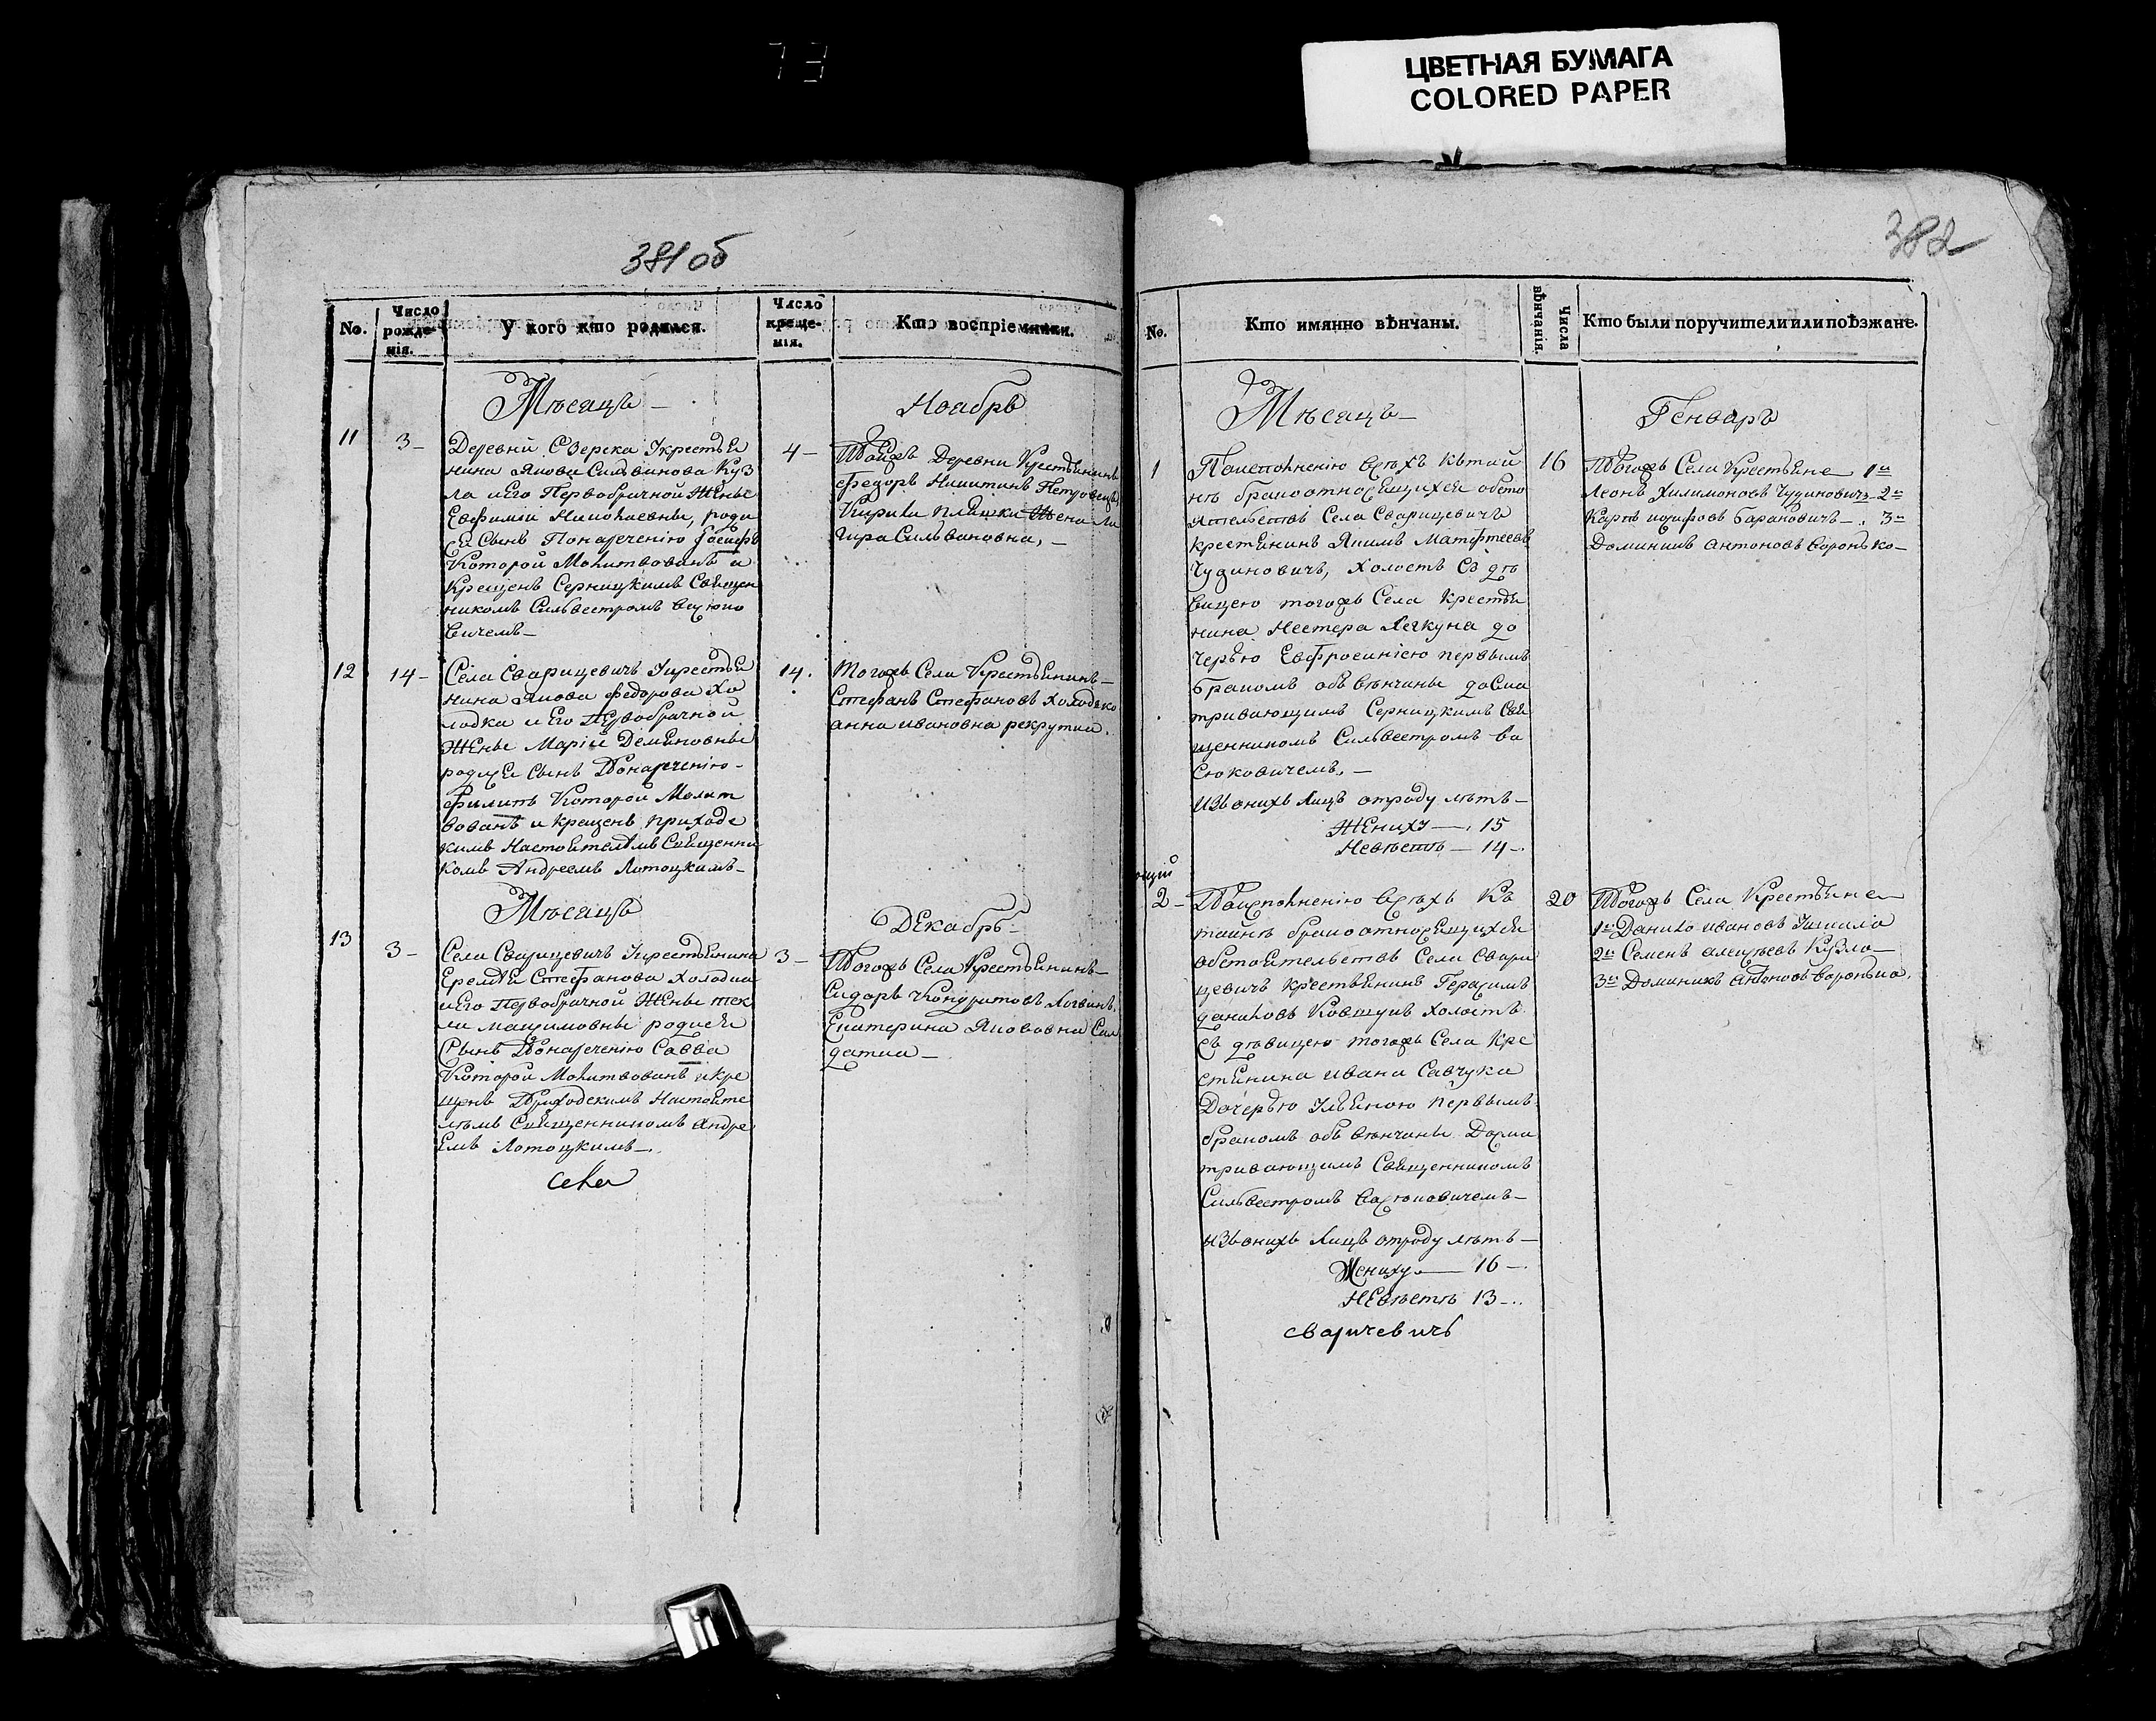 73
ЦВЕТНАЯ БУМАГА
COLORED PAPER
381 об
No.
Число рожденія.
У кого кто родился.
Число крещенія.
Кто воспріемники.
Мѣсяцъ —
Ноабрь
11
3 —
Деревни Озерска Укрестья
нина Якова Сильвинова Куз
ла иего Первобрачной Жены
Евфимiи Николаевны, роди
ся Сынъ Понареченiю Iосифъ
Которой Молитвованъ и
Крещенъ Серницкимъ Священ
никомъ Сильвестромъ Васюко
вичемъ —
4 —
Тойжъ Деревни Крестьянинъ
Федоръ Никитинъ Петровецъ
Кирила Плишки Жена
Сильвановна, —
12
14 —
Села Сварицевичъ Укрестья
нина Якова Федорова Хо
лодка и Его Первобрачной
Жены Марiи Демяновны
родися Сынъ Понареченiю —
Филипъ Которой Молит
вованъ и Крещенъ Приходс
кимъ Настоятелемъ Священни
комъ Андреемъ Лотоцкимъ —
14.
Тогожъ Села Крестьянинъ —
Стефанъ Стефановъ Холодко
анна ивановна рекрутка.
Мѣсяцъ
Декабрь —
13
3 —
Села Сварицевичъ Укрестьянина
Еремѣя Стефанова Холодка
иЕго Первобрачной Жены тек
ли макимовны родися
Сынъ Понареченiю Савва
Которой Молитвованъ икре
щенъ Приходскимъ Настояте
лѣмъ Священникомъ Андре
Емъ Лотоцкимъ —.
3 —
Тогожъ Села Крестьянинъ —
Сидоръ Кондратовъ Логвинъ.
Екатерина Якововна Сол
датка —
382
No.
Кто имянно вѣнчаны.
Числа вѣнчанія.
Кто были поручители или поѣзжане.
Мѣсяцъ —
Генварь
1
Поисполненiю всѣхъ Кътаи
нѣ бракоотносящихся обсто
ятельствъ Села Сварицевичъ
крестянинъ Якимъ Матфтеевъ
Чудиновичъ, холостъ Съ дѣ
вицею тогожъ Села Крестья
нина Нестера Легкуна до
черъю Евфросинiею первымъ
бракомъ объ вѣнчаны досма
тривающимъ Серницкимъ Свя
щенникомъ Сильвестромъ Ва
сюковичемъ, —
изъ онихъ лицъ отроду лѣтъ —
Жениху —. 15
Невѣстѣ — 14 —.
16
Тогожъ Села Крестьяне 1й
Леонъ Хилимоновъ Чудиновичъ — 2й
Карпъ иозифовъ Барановичъ —. 3й
Доминикъ Антоновъ Воронько —
ющій
2 —
Поисполненiю всѣхъ Къ
таинѣ бракоотносящихся
обстоятельствъ Села Свари
цевичъ Крестьянинъ Герасимъ
Даниловъ Ковшунъ холостъ
Съ дѣвицею тогожъ Села Кре
стянина ивана Савчука
Дочерью Ульяною Первымъ
бракомъ объ вѣнчаны Досма
тривающимъ Священникомъ
Сильвестромъ Васюковичемъ —
изъ онихъ лицъ отроду лѣтъ —
Жениху — 16 —.
Невѣстѣ 13 —..
Сваричевичъ
20
Тогожъ Села Крестьяне
1й Данило ивановъ
2й Семенъ алексѣевъ Кузло —
3й Доминикъ Антоновъ Воронько.
села